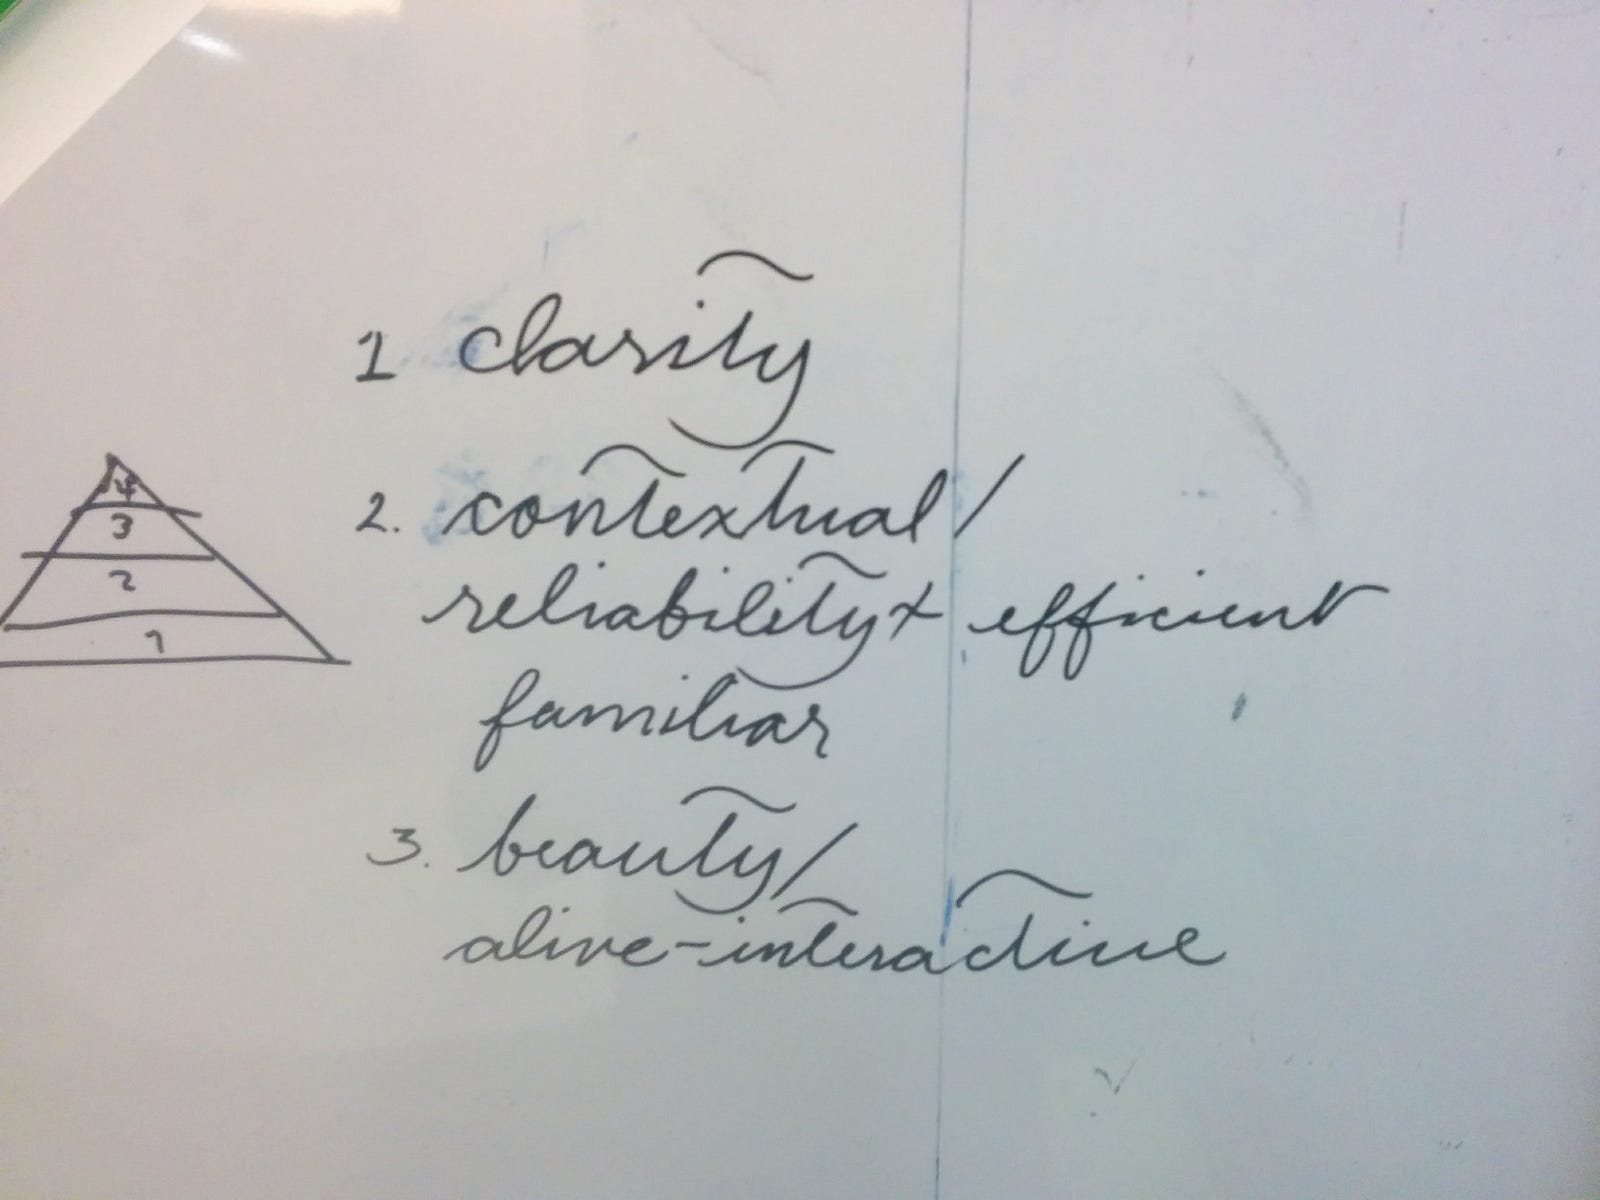 1 clarity
2. contextual/
reliability + efficient
familiar
3. beauty/
alive-interactive
4
3
2
1